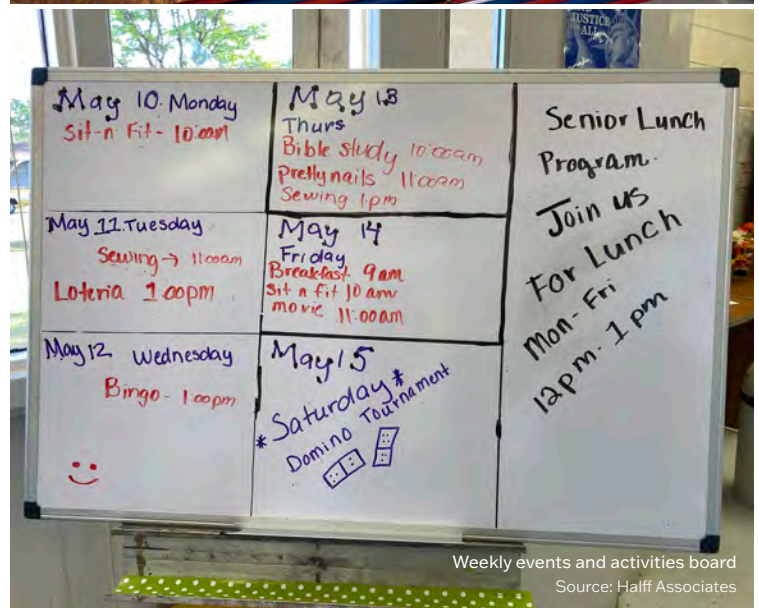 JUSTICE
ALL
May 10. Monday
Sit-n Fit - 10:00am
May 11. Tuesday
Sewing → 11:00am
Loteria 1:00pm
May 12 Wednesday
Bingo - 1:00pm
May 13
Thurs
Bible study 10:00am
pretty nails 11:00am
Sewing 1pm
May 14
Friday
Breakfast 9am
sit n fit 10 am
movie 11:00am
May 15
*Saturday*
Domino Tournament
Senior Lunch
Program.
Join us
For Lunch
Mon-Fri
12pm-1pm
Weekly events and activities board
Source: Halff Associates